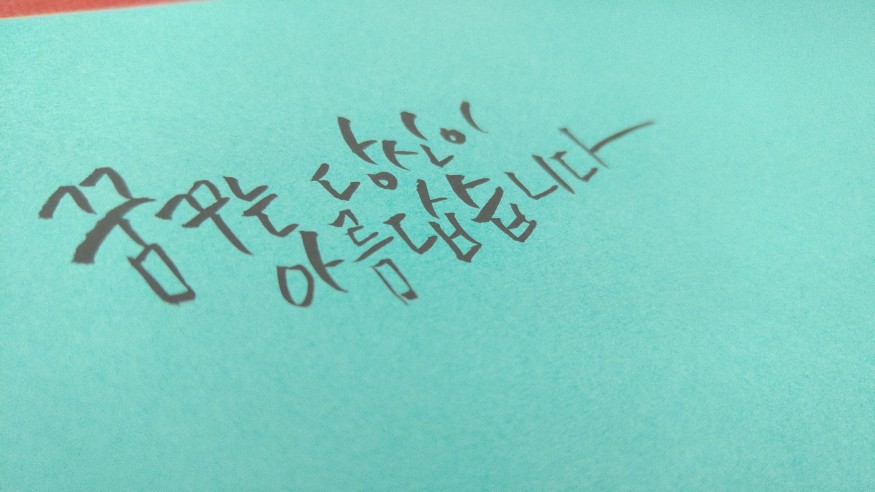 꿈꾸는 당신이
아름답습니다